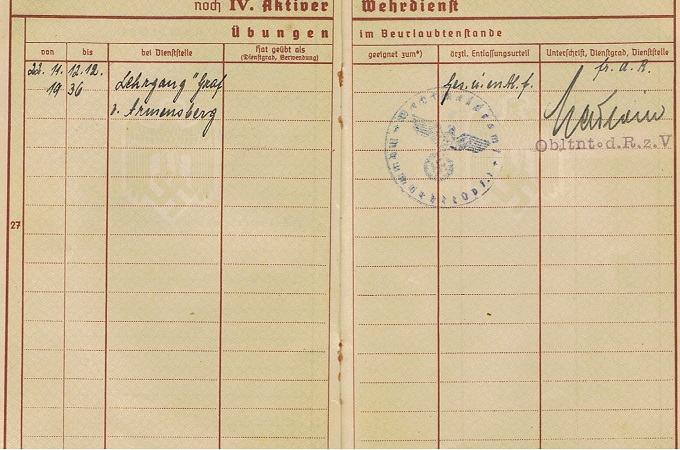 noch IV. Aktiver Wehrdienst
Übungen im Beurlaubtenstande
von
bis
bei Dienststelle
Hat geübt als
(Dienstgrad, Verwendung)
geeignet zum*)
ärztl. Entlassungsurteil
Unterschrift, Dienstgrad, Dienststelle
22. 11. 12. 12.
19 36
Lehrgang "Graf
v. Armensberg
F. d. R.
Obltnt. d. R. z. V
27